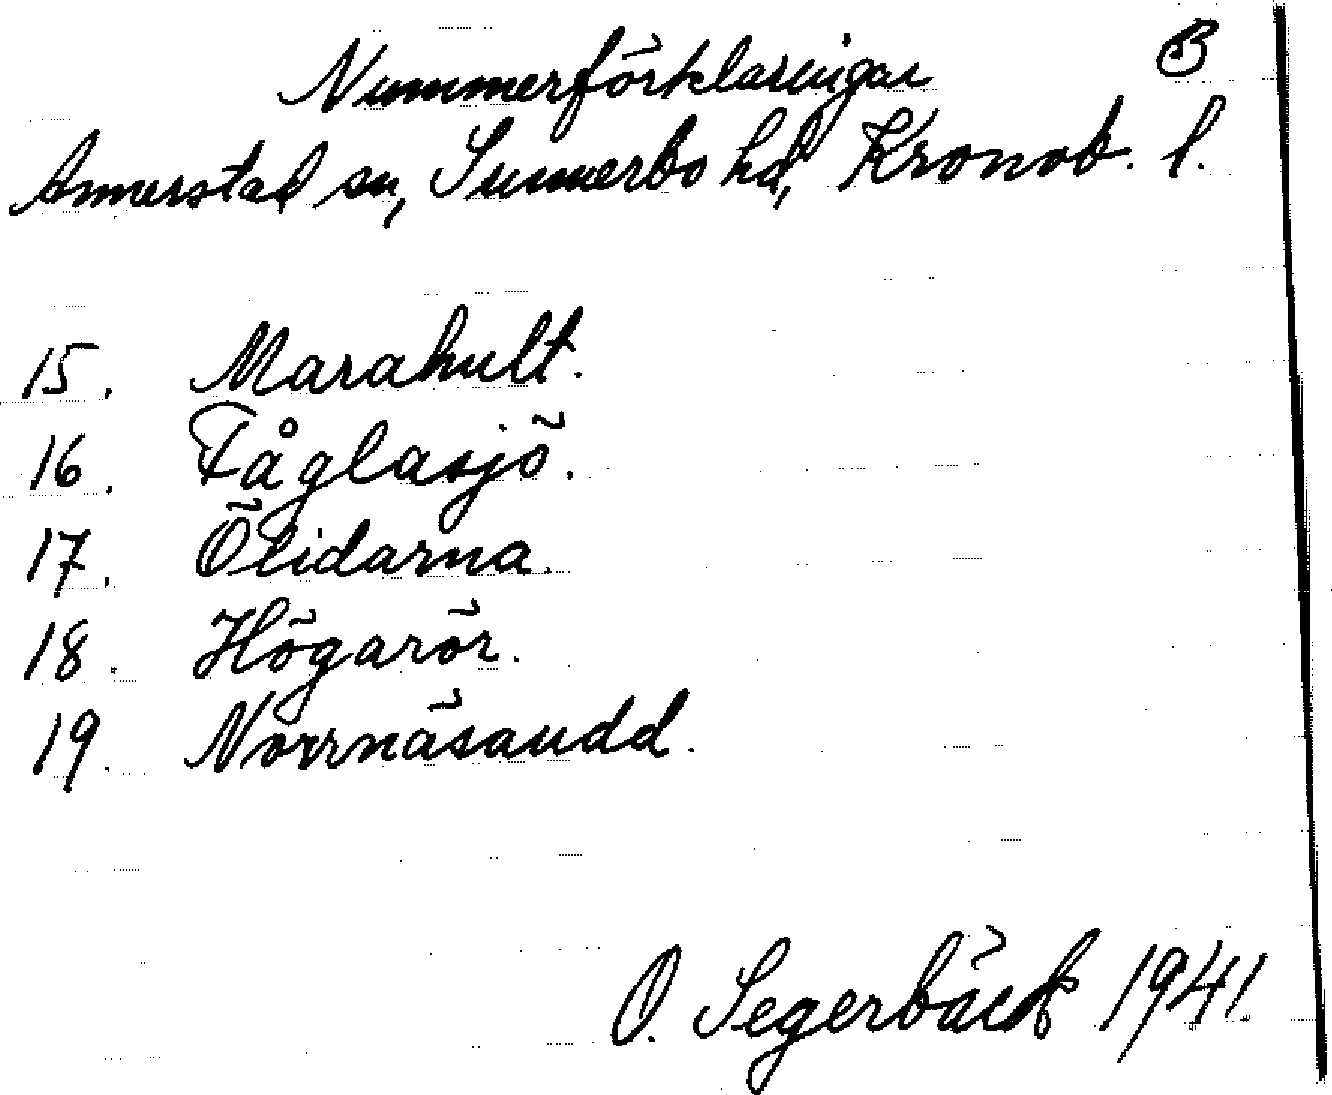 Nummerförklaringar B
Annerstad sn, Sunnerbo hd, Kronob. l.
15. Marahult.
16. Fåglasjö.
17. Ölidarna.
18. Högarör.
19. Norrnäsaudd.
O. Segerbäck 1941.